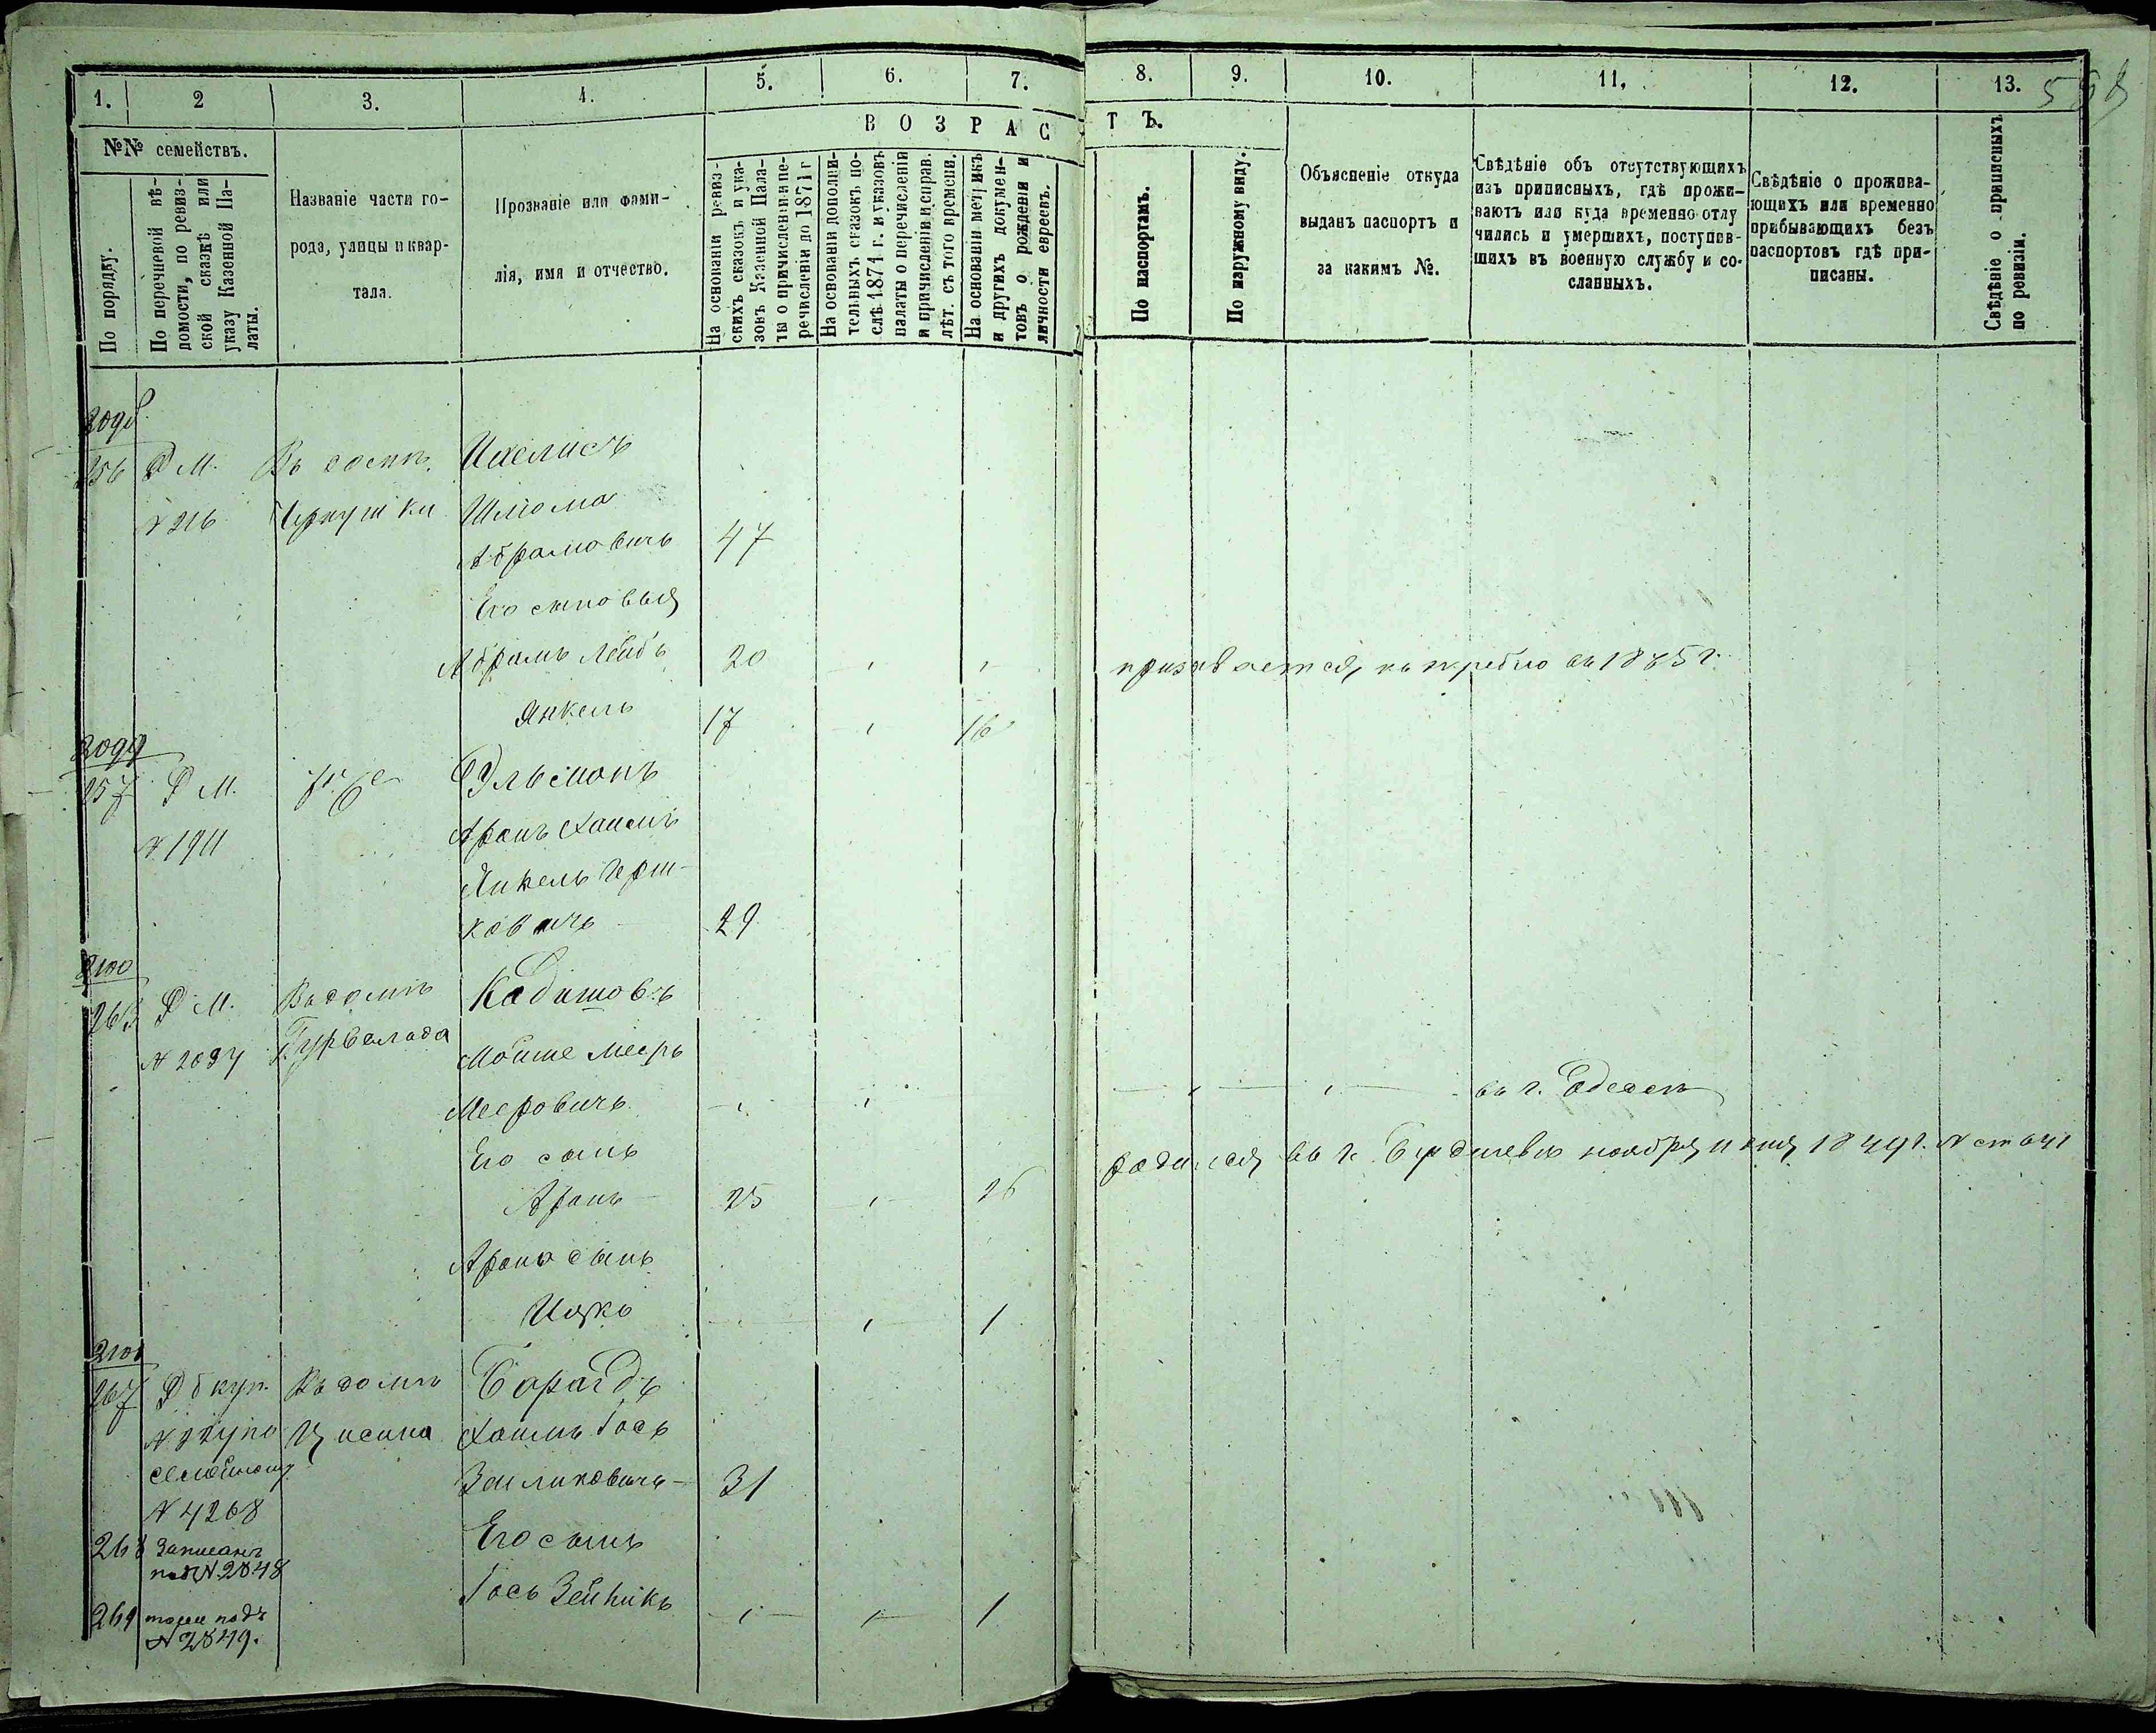 1. 2 3. 4. 5. 6. 7. 8. 9. 10. 11. 12. 13.
№№ семействъ.
По порядку.
По перечневой вѣ-
домости, по ревиз-
ской сказкѣ или
указу Казенной Па-
латы.
Названіе части го-
рода, улицы и квар-
тала.
Прозваніе или фами-
лія, имя и отчество.
ВОЗРАСТЪ.
На основаніи ревиз-
скихъ сказокъ и ука-
зовъ Казенной Пала-
ты о причисленіи и пе-
речисленіи до 1871 г
На основаніи дополни-
тельныхъ сказокъ по-
слѣ 1871 г. и указовъ
палаты о перечисленіи
и причисленіи и справ.
лѣт. съ того времени.
На основаніи метрикъ
и другихъ докумен-
товъ о рожденіи и
личности евреевъ.
По паспортамъ.
По наружному виду.
Объясненіе откуда
выданъ паспортъ и
за какимъ №.
Свѣдѣніе объ отсутствующихъ
изъ приписныхъ, гдѣ прожи-
ваютъ или куда временно отлу
чились и умершихъ, поступив-
шихъ въ военную службу и со-
сланныхъ.
Свѣдѣніе о прожива-
ющихъ или временно
прибывающихъ безъ
паспортовъ гдѣ при-
писаны.
Свѣдѣніе о приписныхъ
по ревизіи.
2098
256 Д М. Въ домѣ
№ 216
Шлома
Абрамовичъ 47
Его сыновья
Абрамъ Лейбъ 20
призывается къ жребію въ 1885 г.
Янкель 17 16
2099
257 Д М. Эльсманъ
№ 1911 Аронъ Хаимъ
Янкель Герш-
ковичъ 29
2100
Д М. Въ домѣ Кадишовъ
№ 2037 Мойше Мееръ
Мееровичъ въ г. Одессѣ
Его сынъ
родился въ г. Бердичевѣ ноября 11 дня 1849 г. №
Аронъ 25 26
Арона сынъ
Ицко 1
2101
267 Въ домѣ
Хаимъ Іось
семейному Зейликовичъ 31
№ 4268
Его сынъ
268 Записанъ
под № 2848
Іось Зейликъ 1
269 тоже подъ
№ 2849.